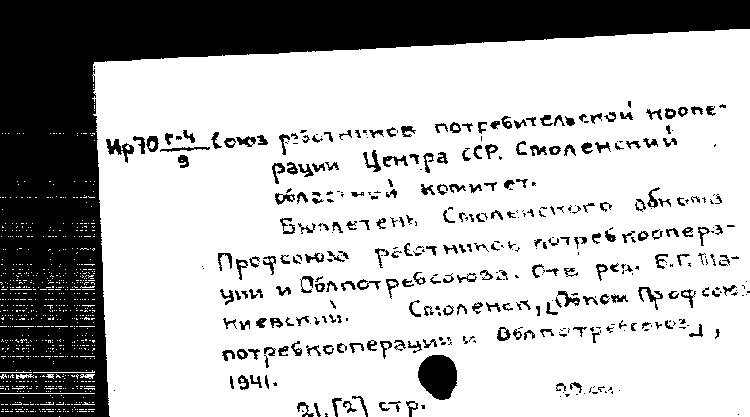 Ир70 г-4/9 Союз работников потребительской коопе-
рации Центра ССР. Смоленский
областной комитет.
Бюллетень Смоленского обкома
Профсоюза работников потребкоопера-
ции и Облпотребсоюза. Отв. ред. Б.Г. Ма-
киевский. Смоленск, [Обком Профсоюз
потребкооперации и Облпотребсоюз],
1941.
21, [2] стр. 29 см.